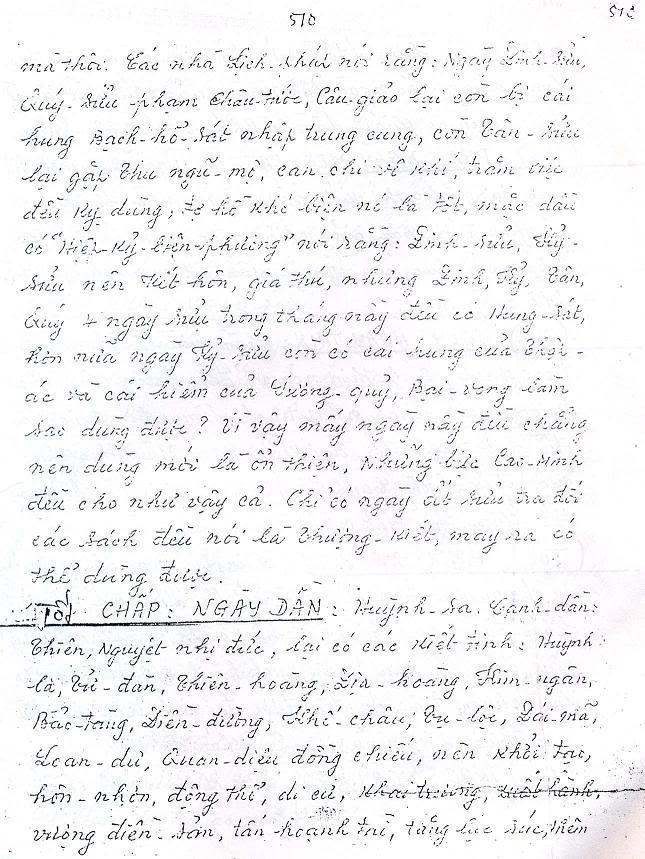 510 510
mà thôi. Các nhà Lịch-pháp nói rằng: Ngày Đinh-Sửu,
Quý-Sửu phạm Châu-tước, Câu-giảo lại còn bị cái
hung Bạch-hổ-Sát nhập trung cung, còn Tân-Sửu
lại gặp Thu ngũ-mộ, can chi vô khí, trăm việc
đều kỵ dùng, tợ hồ khó biện nó là tốt, mặc dầu
có "Hiệp-Kỷ-biện-phương" nói rằng: Đinh-Sửu, Kỷ-
Sửu nên Kết hôn, giá thú, nhưng Đinh, Kỷ, Tân,
Quý 4 ngày Sửu trong tháng này đều có Hung-Sát,
hơn nữa ngày Kỷ-Sửu còn có cái hung của
ác và cái hiểm của Vương-quỷ, Bại-vong làm
sao dùng được? Vì vậy mấy ngày này đều chẳng
nên dùng mới là ổn thiện, Những bực Cao-Minh
đều cho như vậy cả. Chỉ có ngày Ất Sửu tra đối
các sách đều nói là Thượng-Kiết, may ra có
thể dùng được.
CHẤP: NGÀY DẦN: Huỳnh-sa. Canh-dần:
Thiên, Nguyệt nhị đức, lại có các Kiết tinh: Huỳnh
la, Tử-đàn, Thiên-hoàng, Địa-hoàng, Kim-ngân,
Bảo-tàng, Điền-đường, Khố-châu, Tụ-lộc, Đái-mã,
Loan-dư, Quan-diêu đồng chiếu, nên Khởi tạo,
hôn-nhơn, động thổ, di cư, Khai trương, xuất hành,
vượng điền-sản, tấn hoạnh tài, tăng lục súc, thêm